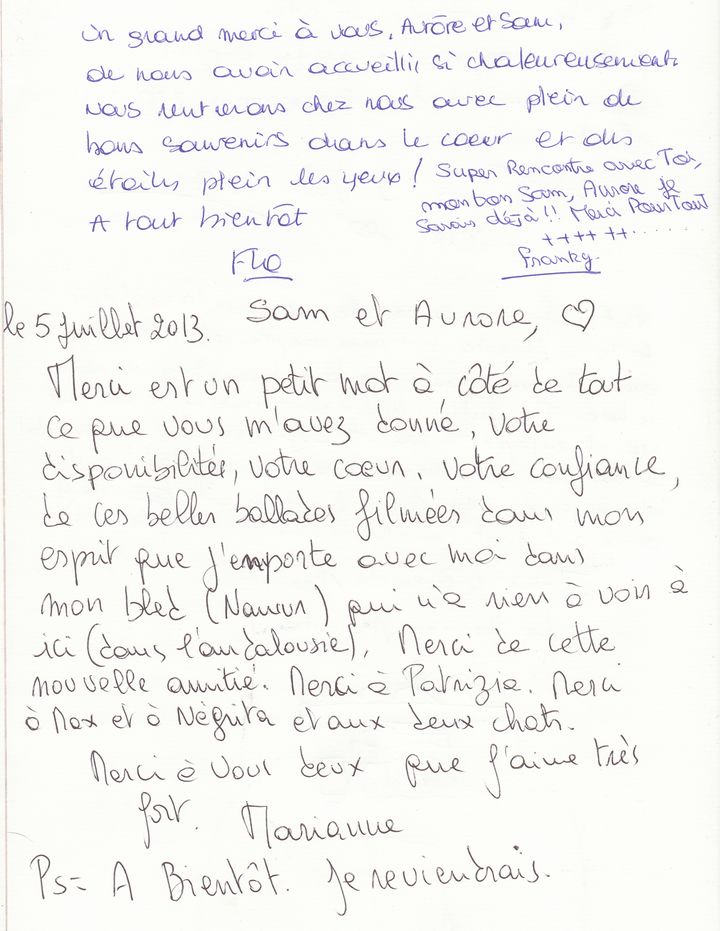 Un grand merci à vous, Aurore et Sam,
de nous avoir accueilli, si chaleureusement.
Nous rentrerons chez nous avec plein de
bons souvenirs dans le coeur et des
étoiles plein les yeux !
A tout bientôt
Flo
Super Rencontre avec Toi,
mon bon Sam, Aurore je
Savais déjà !! Merci Pour Tout
++++ ++.......
Franky.
le 5 Juillet 2013.
Sam et Aurore, ♡
Merci est un petit mot à côté de tout
ce que vous m'avez donné, votre
disponibilitée, votre coeur, votre confiance,
de ces belles ballades filmées dans mon
esprit que j'emporte avec moi dans
mon bled (Namur) qui n'a rien à voir à
ici (dans l'andalousie). Merci de cette
nouvelle amitié. Merci à Patrizia. Merci
à Max et à Négrita et aux deux chats.
Merci à Vous deux que j'aime très
fort. Marianne
Ps= A Bientôt. Je reviendrais.